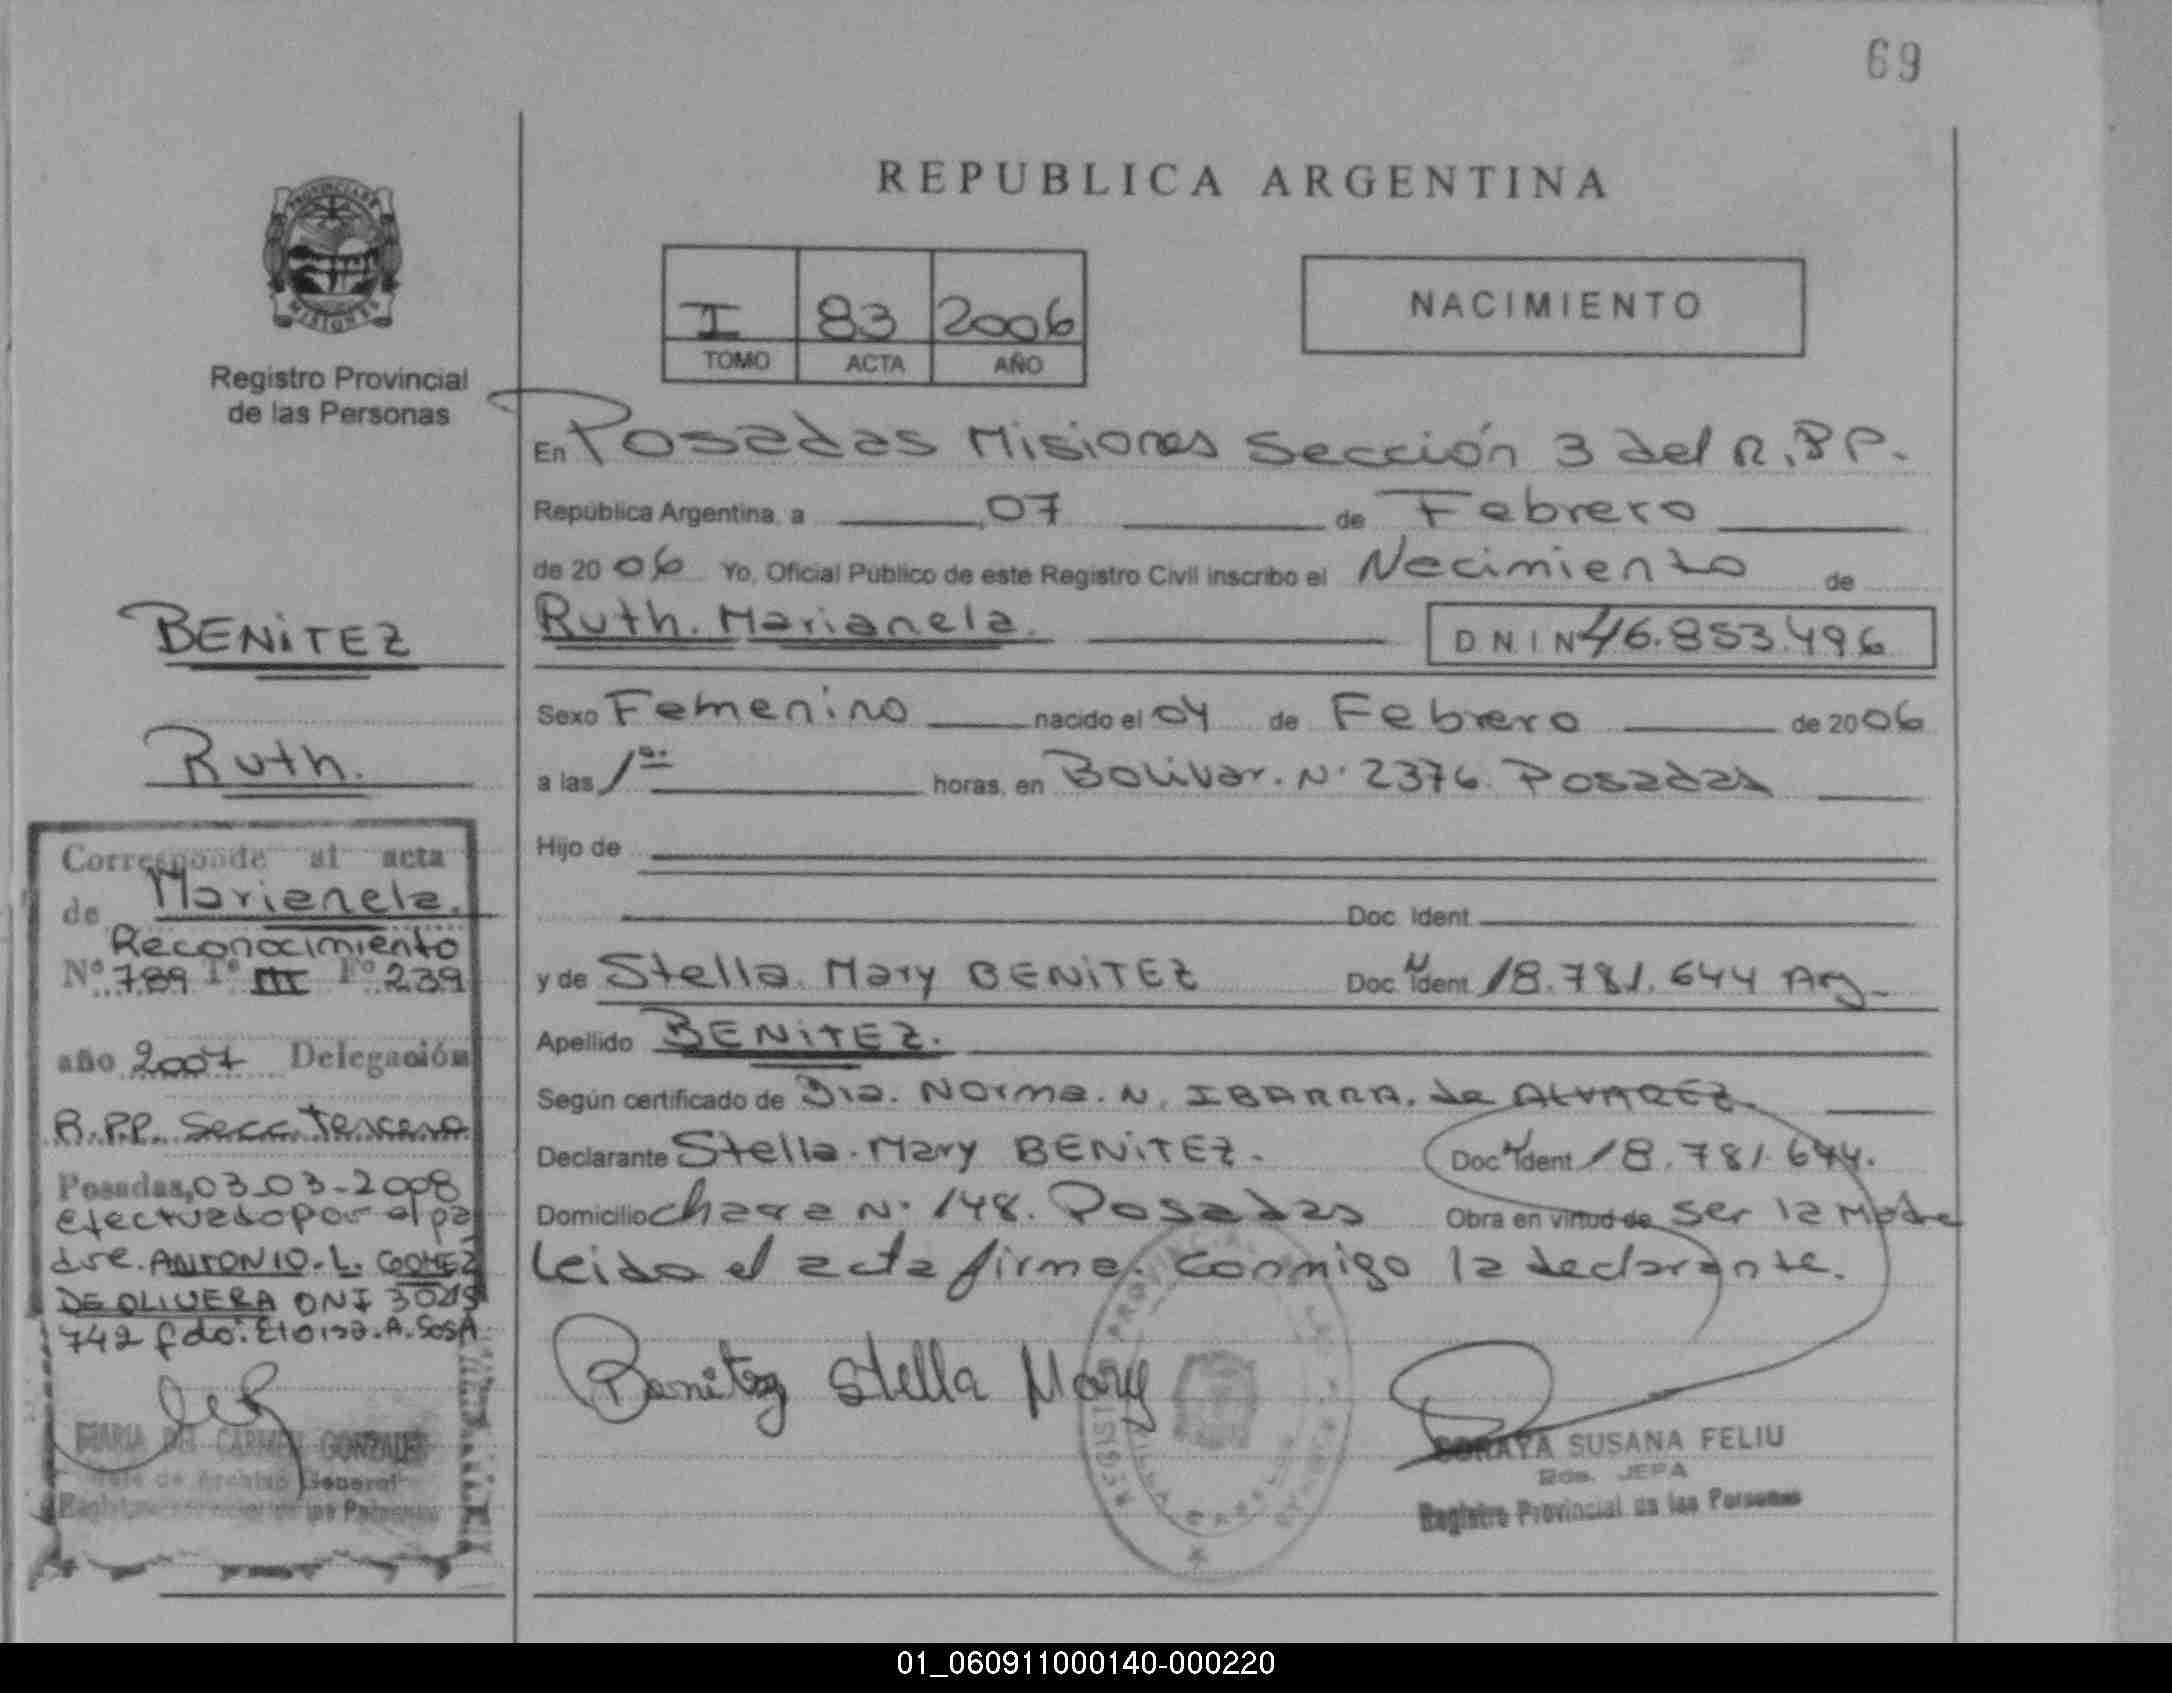 69
REPUBLICA ARGENTINA
I 83 2006
TOMO ACTA AÑO
NACIMIENTO
Registro Provincial
de las Personas
En Posadas Misiones Sección 3 del R.P.P.
República Argentina, a 07 de Febrero
de 2006 Yo, Oficial Público de este Registro Civil inscribo el Nacimiento de
Ruth. Marianela. D N I N 46.853.496
Sexo Femenino nacido el 04 de Febrero de 2006
a las 1 horas, en Bolivar. N. 2376. Posadas
Hijo de
Doc. Ident.
y de Stella. Mary BENITEZ Doc. Ident. 18.781.644 Arg.
Apellido BENITEZ.
Según certificado de Dra. Norma. N. IBARRA. de ALVAREZ.
Declarante Stella. Mary BENITEZ. Doc. Ident. 18.781.644.
Domicilio chacra N. 148. Posadas Obra en virtud de ser la Madre
Leida el acta firma. conmigo la declarante.
Benitez Stella Mary
SORAYA SUSANA FELIU
Registro Provincial de las Personas
BENITEZ
Ruth.
Corresponde al acta
Marianela.
de Reconocimiento
Nº 789 Tº III Fº 239
año 2007 Delegación
R.P.P. Secc. Tercera
Posadas, 03-03-2008
efectuado por el pa
dre. ANTONIO. L. GOMEZ
DE OLIVERA DNI 30215
742 fdo: Eloisa. A. SOSA
MARIA DEL CARMEN GONZALEZ
Jefe de Archivo General
Registro Provincial de las Personas
01_060911000140-000220